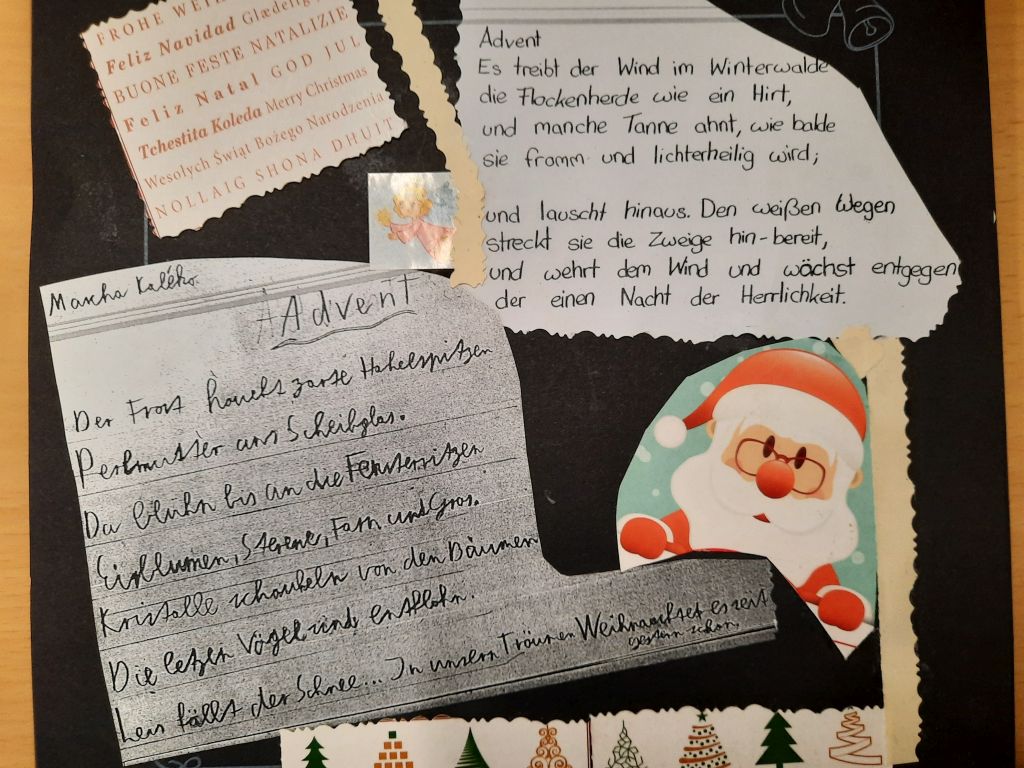 FROHE WEIH
Feliz Navidad Glædelig
BUONE FESTE NATALIZIE
Feliz Natal GOD JUL
Tchestita Koleda Merry Christmas
Wesołych Świąt Bożego Narodzenia
NOLLAIG SHONA DHUIT
Advent
Es treibt der Wind im Winterwalde
die Flockenherde wie ein Hirt,
und manche Tanne ahnt, wie balde
sie fromm und lichterheilig wird;
und lauscht hinaus. Den weißen Wegen
streckt sie die Zweige hin-bereit,
und wehrt dem Wind und wächst entgegen
der einen Nacht der Herrlichkeit.
Mascha Kaléko
Advent
Der Frost haucht zarte Hakelspitzen
Perlmutter ans Scheibglas.
Da blühn bis an die Fensterritzen
Eisblumen, Sterne, Farn und Gras.
Kristalle schaukeln von den Bäumen
Die letzen Vögel sind entflohn.
Leis fällt der Schnee... In unsern Träumen Weihnachtet es seit
gestern schon.